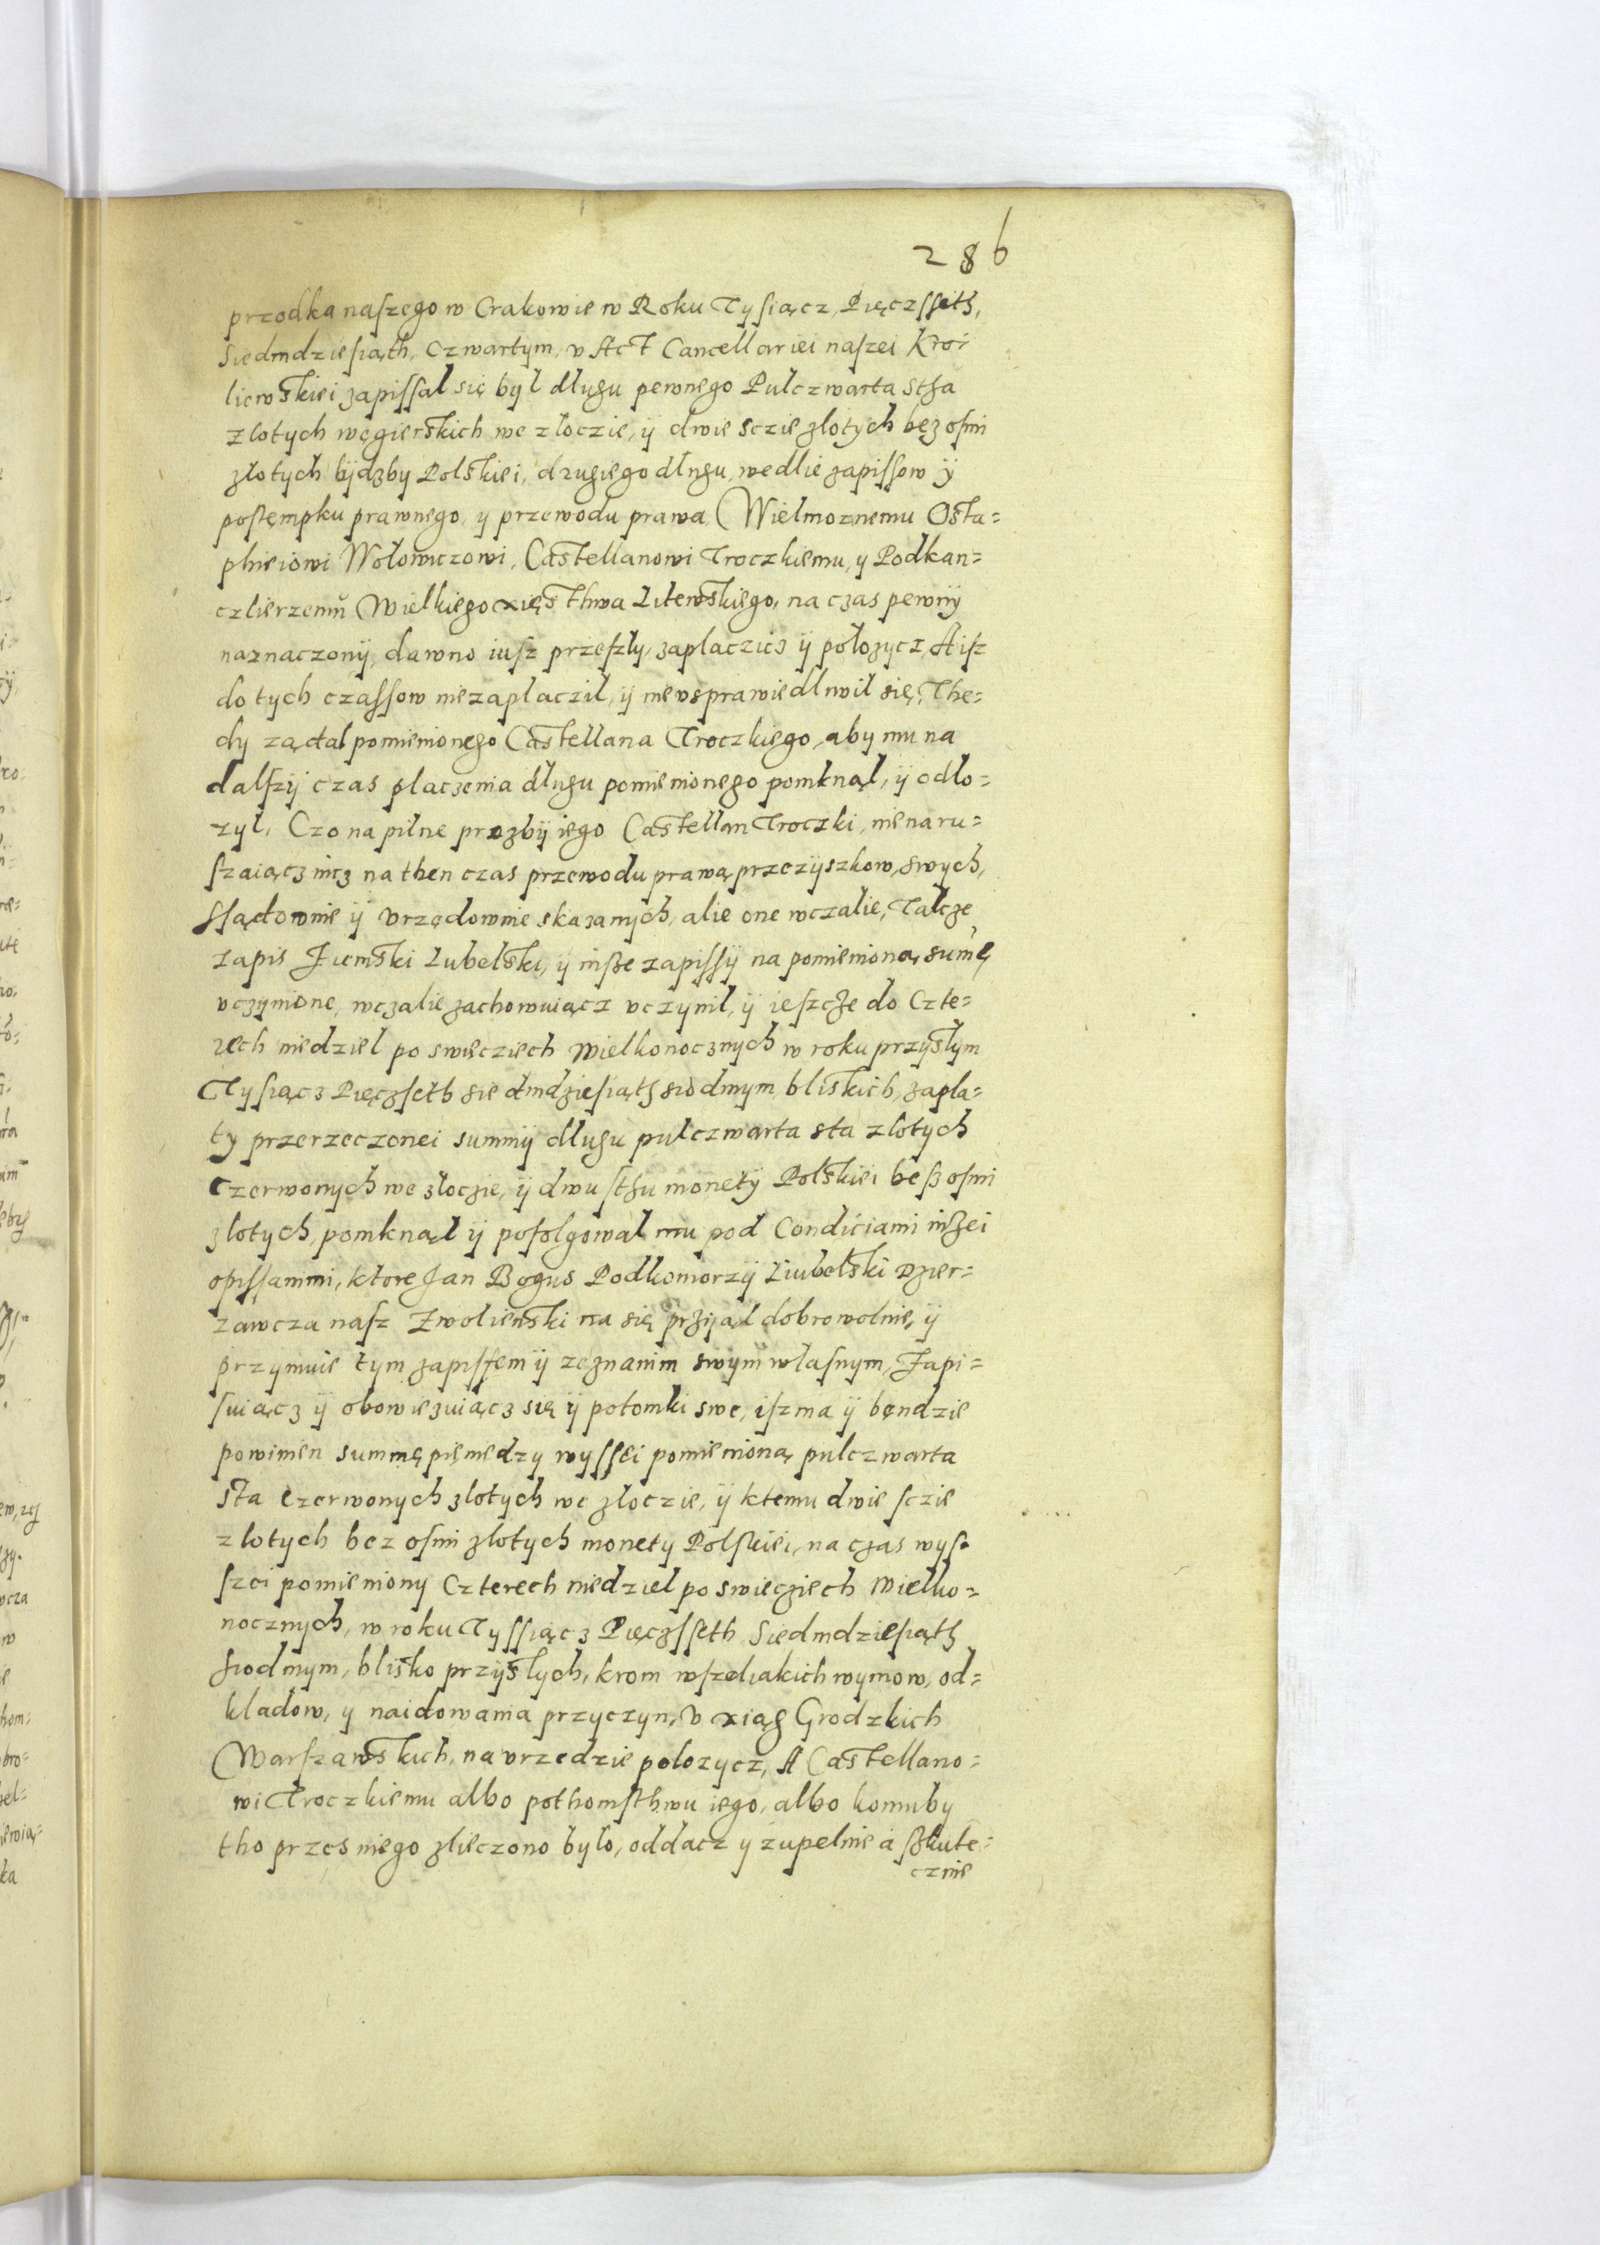 286
przodka naszego w Crakowie w Roku Tysiącz, Pięczsseth,
Siedmdziesiąth, Czwartym, v Act Cancellariei naszei Kro=
liewskiei zapissal się był długu pewnego Pulczwarta stha
złotych węgierskich we złoczie, ÿ dwie sczie złotych bez osmi
złotych lÿdzby Polskiei, drugiego długu, wedlie zapissow ÿ
postempku prawnego, y przewodu prawa Wielmoznemu Osta=
phieiowi Wołowiczowi, Castellanowi Troczkiemu, y Podkan=
czlierzemu Wielkiego xięsthwa Litewskiego, na czas pewnÿ
naznaczonÿ, dawno iusz przeszły, zaplaczicz ÿ położycz, A isz
do tych czassow niezaplaczil, ÿ nieusprawiedliwil się, The=
dy żądal pomienionego Castellana Troczkiego, aby mu na
dalszÿ czas płaczenia długu pomienionego pomknął, ÿ odło=
zył, Czo na pilne prozbÿ iego Castellan Troczki, nienaru=
szaiącz nicz na then czas przewodu prawa, przezÿszkow, swych,
ssądownie ÿ vrzędownie skazanÿch, alie one wczalie, Takze
zapis Ziemski Lubelski, ÿ insze zapissÿ na pomienioną sumę
vczynione, wczalie zachowuiącz vczynil, ÿ ieszcze do Czte=
rech niedziel po swięcziech wielkonocznych w roku przyslym
Tysiącz Pięczseth siedmdziesiąth siodmym, bliskich, zapla=
ty przerzeczonei summÿ długu pulczwarta sta złotych
Czerwonych we złoczie, ÿ dwu sthu monetÿ Polskiei besz osmi
złotych, pomknął ÿ pofolgował mu pod Condiciami niżei
opissanimi, ktore Jan Bogus Podkomorzÿ Liubelski Dzier=
zawcza nasz Zwolienski na się przÿął dobrowolnie, ÿ
przymuie tym zapissem ÿ zeznanim swym własnym, Zapi=
suiącz ÿ obowiezuiącz się ÿ potomki swe, isz ma ÿ bęndzie
powinien summę pięniedzy wyssei pomienioną pulczwarta
sta Czerwonych złotych we złoczie, ÿ ktemu dwie sczie
złotych bez osmi złotych monety Polskiei, na czas wys=
szei pomieniony Czterech niedziel po swiecziech Wielko=
nocznych, w roku Tyssiącz Pięczsseth Siedmdziesiąth
siodmym, blisko przÿslych, krom wszeliakich wymow, od=
kladow, y naidowania przyczyn, V xiąg Grodzkich
Warszawskich, na vrzedzie polozycz, A Castellano=
wi Troczkiemu albo pothomsthwu iego, albo komuby
tho przes niego zlieczono bylo, oddacz y zupelnie a szkute=
cznie